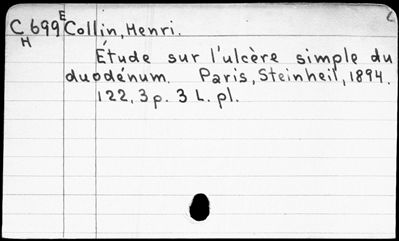 C 699 E Collin, Henri.
H
Étude sur l'ulcère simple du
duodénum. Paris, Steinheil, 1894.
122, 3 p. 3 L. pl.